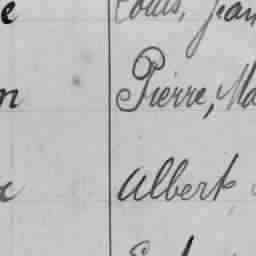 e Louis, Jean
n Pierre, Ma
Albert